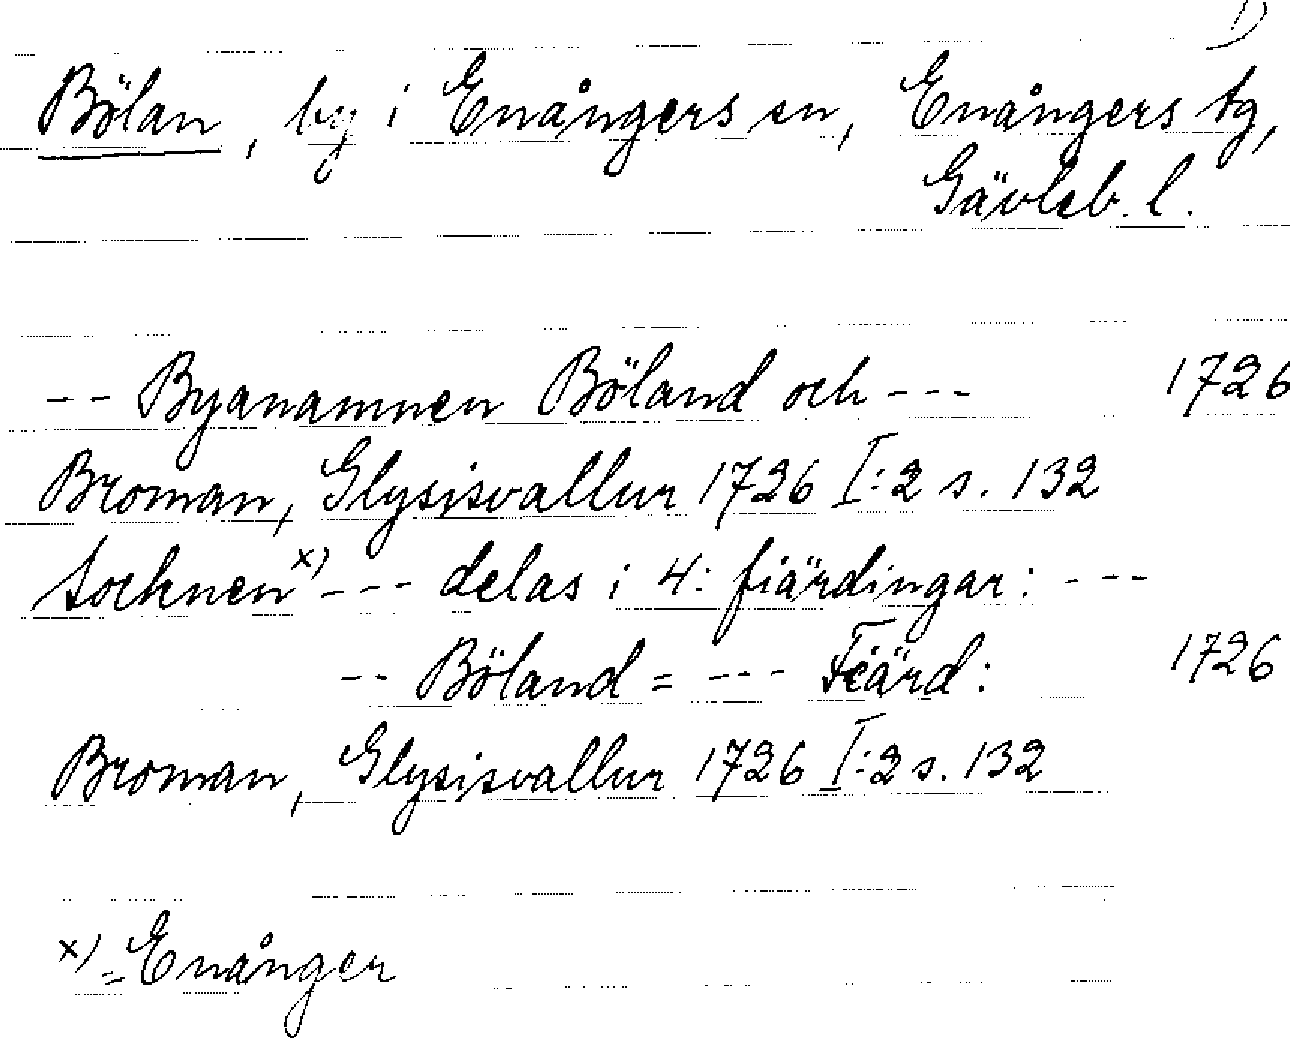 1)
Bölan, by i Enångers sn, Enångers tg,
Gävleb. l.
-- Byanamnen Böland och --- 1726
Broman, Glysisvallur 1726 I:2 s. 132
Socknen x) --- delas i 4: fiärdingar: ---
-- Böland = --- Fiärd: 1726
Broman, Glysisvallur 1726 I:2 s. 132
x) = Enånger